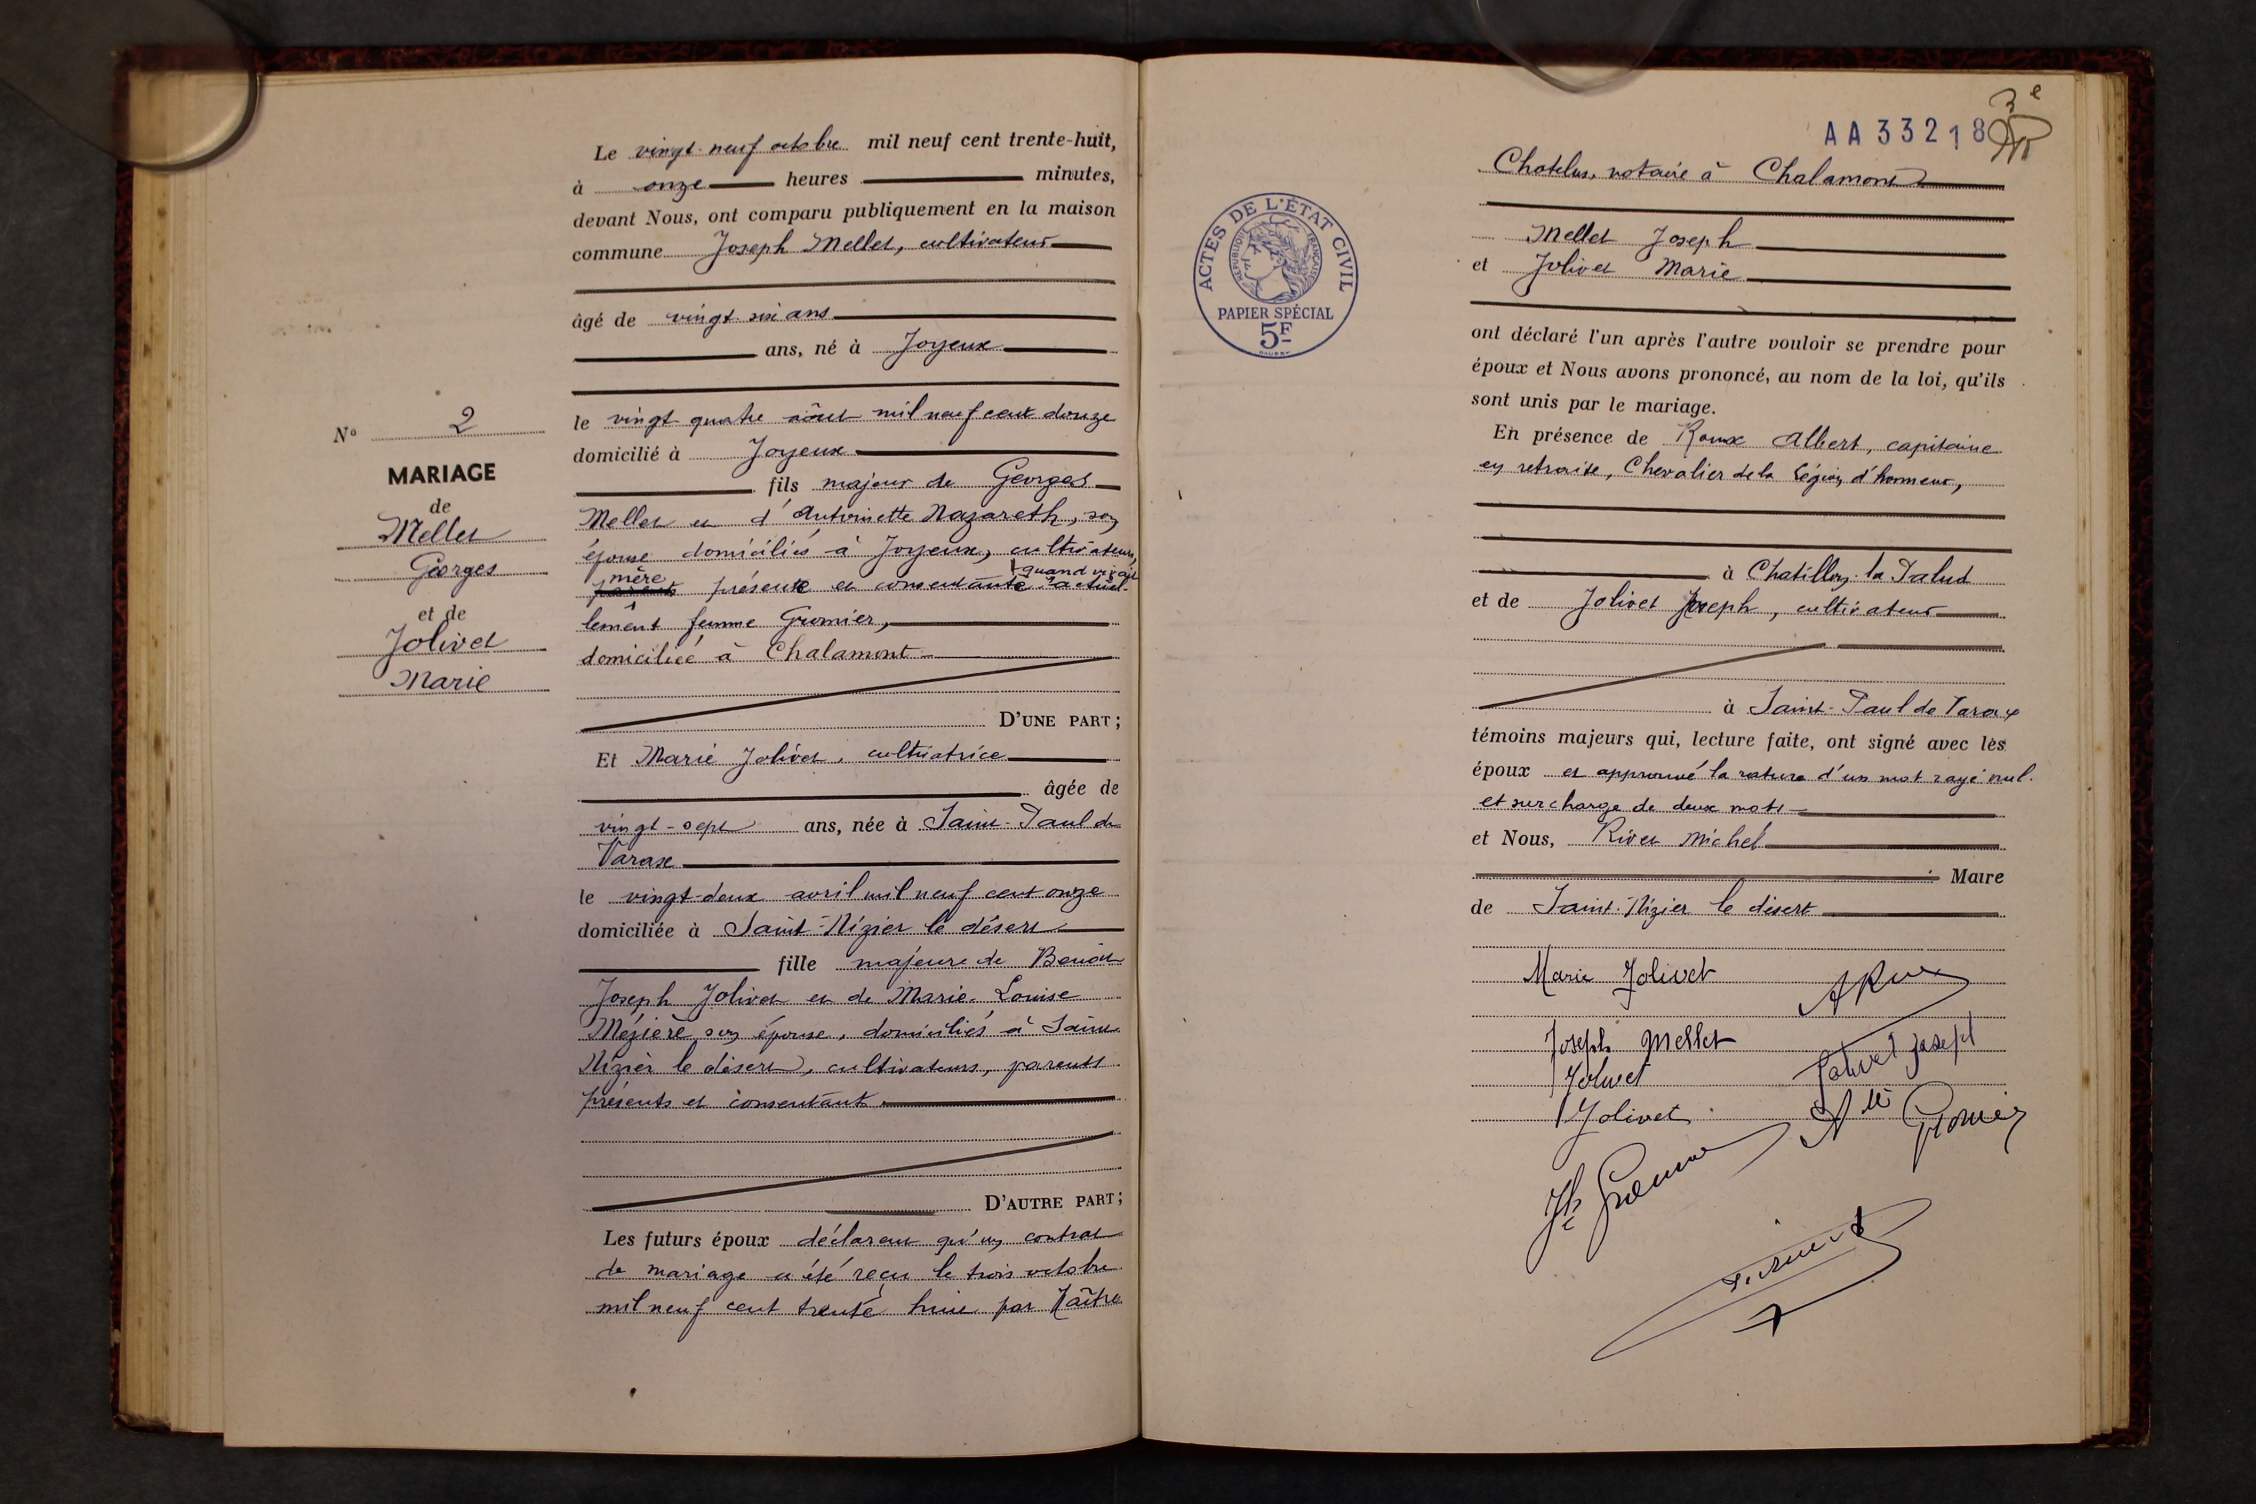 Le vingt-neuf octobre mil neuf cent trente-huit,
à onze heures minutes,
devant Nous, ont comparu publiquement en la maison
commune Joseph Mellet, cultivateur
âgé de vingt-six ans
ans, né à Joyeux
le vingt quatre août mil neuf cent douze
domicilié à Joyeux
fils majeur de Georges
Mellet et d'Antoinette Nazareth, son
épouse domiciliés à Joyeux, cultivateurs,
quand vivait
mère présente et consentante actuel-
lement femme Gromier,
domiciliée à Chalamont
D'UNE PART;
Nº 2
MARIAGE
de
Mellet
Georges
et de
Jolivet
Marie
Et Marie Jolivet, cultivatrice
âgée de
vingt-sept ans, née à Saint-Paul de
Varax
le vingt-deux avril mil neuf cent onze
domiciliée à Saint-Nizier le désert
fille majeure de Benoit
Joseph Jolivet et de Marie-Louise
Mézière son épouse, domiciliés à Saint
Nizier le désert, cultivateurs, parents
présents et consentant
D'AUTRE PART;
Les futurs époux déclarent qu'un contrat
de mariage a été reçu le trois octobre
mil neuf cent trente huit par Maître
3e
AA 33218
ACTES DE L'ÉTAT CIVIL
RÉPUBLIQUE FRANÇAISE
PAPIER SPÉCIAL
5F
Chatelus, notaire à Chalamont
Mellet Joseph
et Jolivet Marie
ont déclaré l'un après l'autre vouloir se prendre pour
époux et Nous avons prononcé, au nom de la loi, qu'ils
sont unis par le mariage.
En présence de Roux Albert, capitaine
en retraite, Chevalier de la Légion d'honneur,
à Chatillon-la Palud
et de Jolivet Joseph, cultivateur
à Saint-Paul de Varax
témoins majeurs qui, lecture faite, ont signé avec les
époux et approuvé la rature d'un mot rayé nul.
et surcharge de deux mots
et Nous, Rivet Michel
Maire
de Saint-Nizier le désert
Marie Jolivet
ARoux
Joseph Mellet
Jolivet Joseph
Jolivet
Jolivet
Atte Gromier